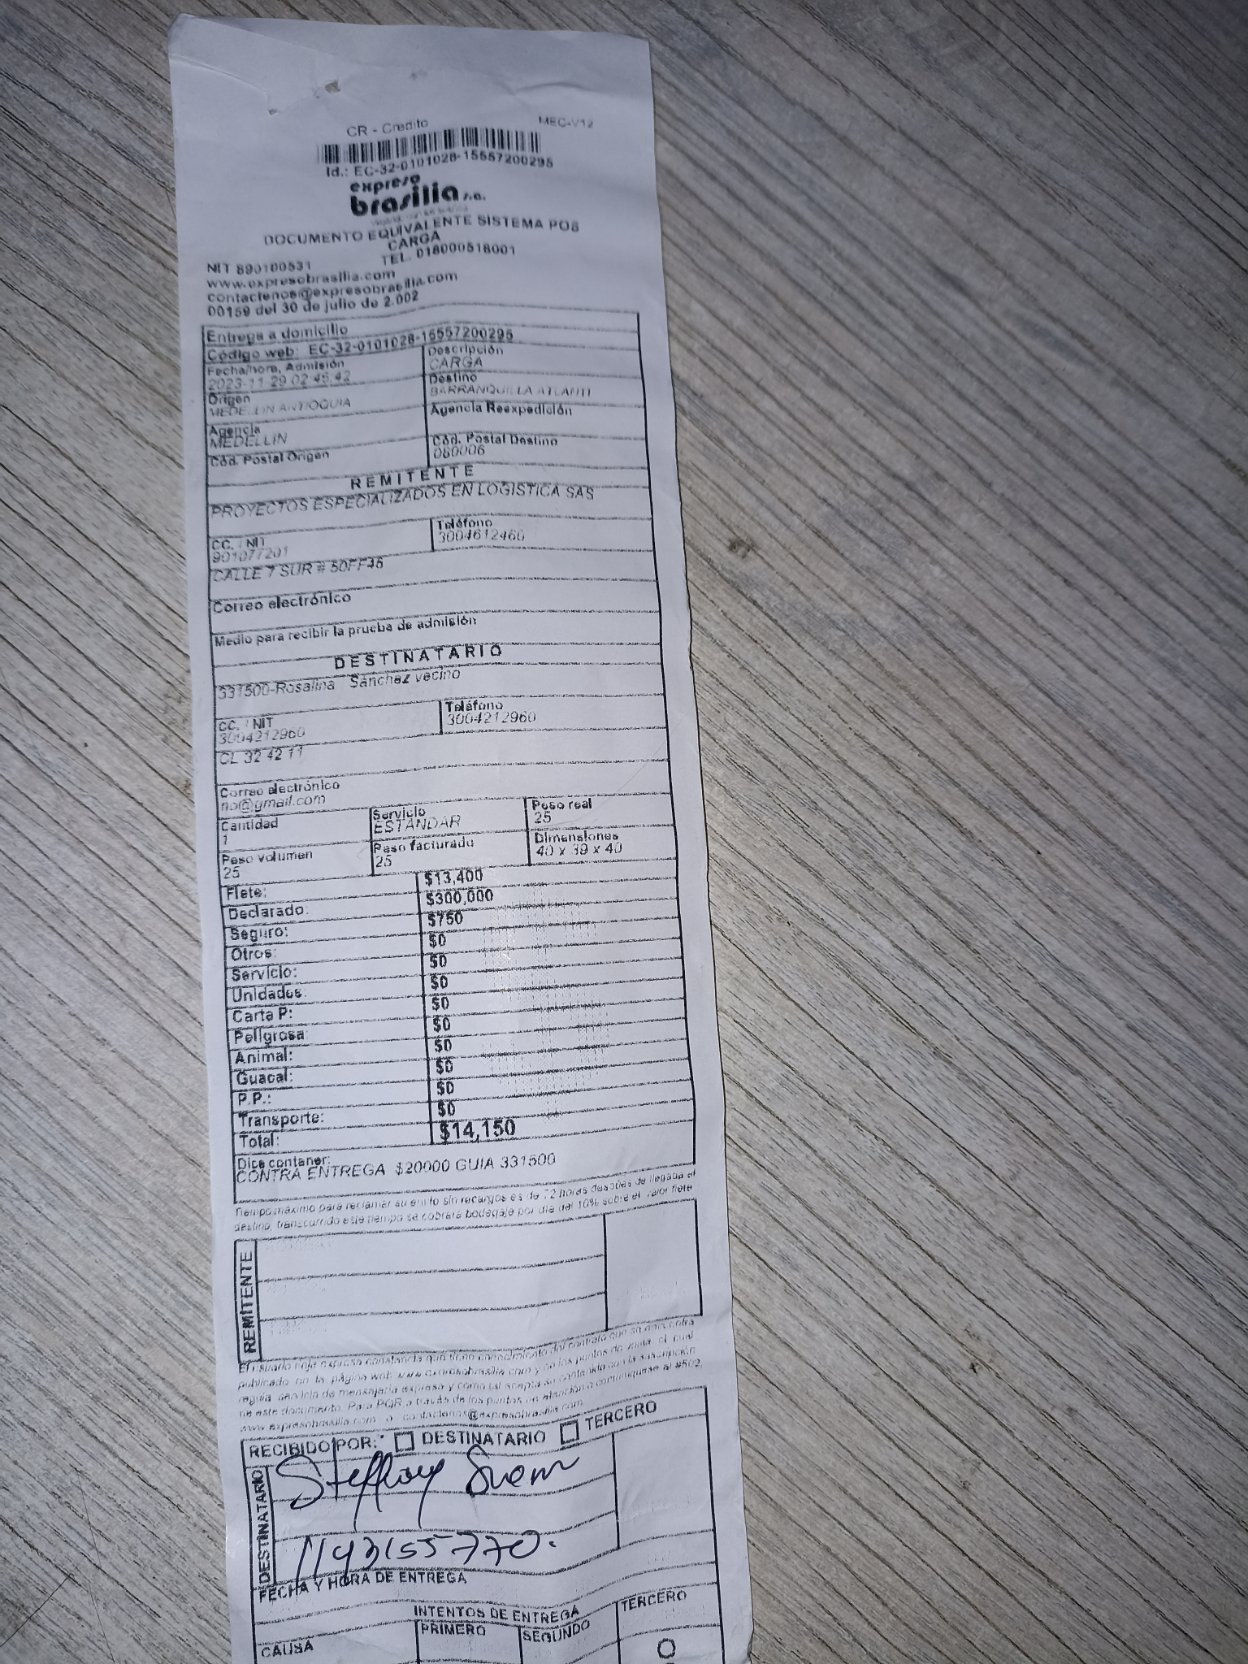 CR - Credito MEC-V12
Id.: EC-32-0101028-15557200295
expreso
brasilia s.a.
DOCUMENTO EQUIVALENTE SISTEMA POS
CARGA
NIT 890100531 TEL. 018000518001
www.expresobrasilia.com
contactenos@expresobrasilia.com
00159 del 30 de julio de 2.002
Entrega a domicilio
Código web: EC-32-0101028-15557200295
Fecha/hora, Admisión Descripción
2023-11-29 02:45:42 CARGA
Origen Destino
MEDELLIN ANTIOQUIA BARRANQUILLA ATLANTI
Agencia Agencia Reexpedición
MEDELLIN
Cód. Postal Origen Cód. Postal Destino
080006
REMITENTE
PROYECTOS ESPECIALIZADOS EN LOGISTICA SAS
CC. / NIT Teléfono
901077201 3004612460
CALLE 7 SUR # 50FF35
Correo electrónico
Medio para recibir la prueba de admisión
DESTINATARIO
331500-Rosalina Sánchez vecino
CC. / NIT Teléfono
3004212960 3004212960
CL 32 42 11
Correo electrónico
no@gmail.com
Cantidad Servicio Peso real
1 ESTANDAR 25
Peso volumen Peso facturado Dimensiones
25 25 40 x 39 x 40
Flete: $13,400
Declarado: $300,000
Seguro: $750
Otros: $0
Servicio: $0
Unidades: $0
Carta P: $0
Peligrosa: $0
Animal: $0
Guacal: $0
P.P.: $0
Transporte: $0
Total: $14,150
Dice contener:
CONTRA ENTREGA $20000 GUIA 331500
Tiempo máximo para reclamar su envío sin recargos es de 72 horas después de llegada al
destino, transcurrido este tiempo se cobrará bodegaje por día del 10% sobre el valor flete
REMITENTE
El usuario deja expresa constancia que tiene conocimiento del contrato que se encuentra
publicado en la página web www.expresobrasilia.com y en los puntos de venta, el cual
regula servicio de mensajería expresa y como tal acepta su contenido con la suscripción
de este documento. Para PQR a través de los puntos de atención o comuníquese al #502,
www.expresobrasilia.com o contactenos@expresobrasilia.com
RECIBIDO POR: DESTINATARIO TERCERO
DESTINATARIO
1143155770.
FECHA Y HORA DE ENTREGA
INTENTOS DE ENTREGA
CAUSA PRIMERO SEGUNDO TERCERO